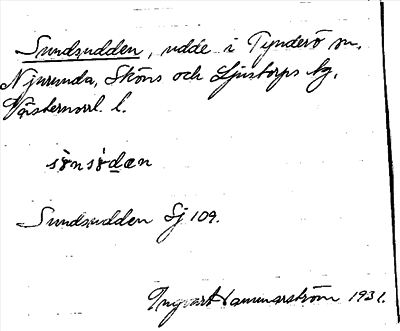 Sundsudden, udde i Tynderö sn.
Njurunda, Sköns och Ljustorps tg,
Västernorrl. l.
sönsödæn
Sundsudden Sj 109.
Ingvar Hammarström 1931.